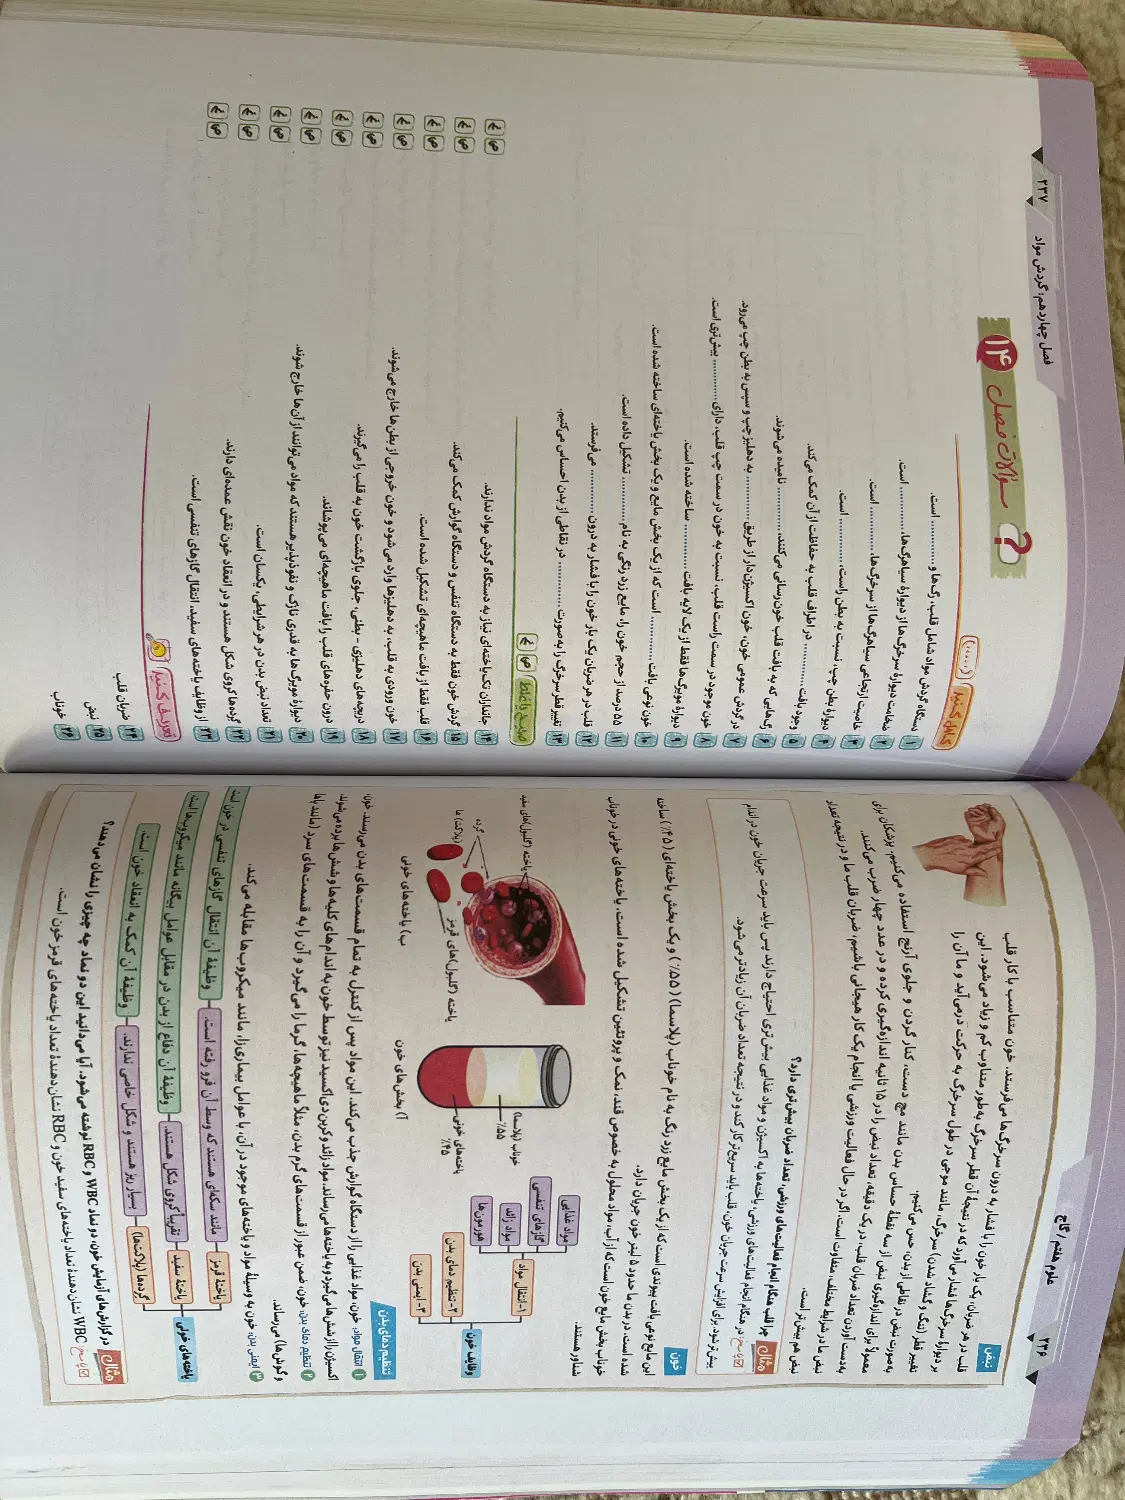 علوم هفتم / گاج
۲۳۶
نبض
قلب در هر ضربان، یک بار خون را با فشار به درون سرخرگ‌ها می‌فرستد. خون متناسب با کار قلب
بر دیوارهٔ سرخرگ‌ها فشار می‌آورد که در نتیجهٔ آن قطر سرخرگ به‌طور متناوب کم و زیاد می‌شود. این
تغییر قطر (تنگ و گشاد شدن) سرخرگ، مانند موجی در طول سرخرگ به حرکت درمی‌آید و ما آن را
به‌صورت نبض در نقاطی از بدن، حس می‌کنیم.
معمولاً برای اندازه‌گیری نبض از سه نقطهٔ حساس بدن مانند مچ دست، کنار گردن و جلوی آرنج استفاده می‌کنیم. پزشکان برای
به‌دست آوردن تعداد ضربان قلب، در یک دقیقه، تعداد نبض را در ۱۵ ثانیه اندازه‌گیری کرده و در عدد چهار ضرب می‌کنند.
نبض ما در شرایط مختلف، متفاوت است. اگر در حال فعالیت ورزشی یا انجام یک کار هیجانی باشیم، ضربان قلب ما و در نتیجه تعداد
نبض هم بیش‌تر است.
مثال چرا قلب هنگام انجام فعالیت‌های ورزشی، تعداد ضربان بیش‌تری دارد؟
پاسخ در هنگام انجام فعالیت‌های ورزشی، یاخته‌ها به اکسیژن و مواد غذایی بیش‌تری احتیاج دارند پس باید سرعت جریان خون در اندام
بیش‌تر شود. برای افزایش سرعت جریان خون، قلب باید سریع‌تر کار کند و در نتیجه تعداد ضربان آن زیادتر می‌شود.
خون
این مایع نوعی بافت پیوندی است که از یک بخش مایع زرد رنگ به نام خوناب (پلاسما) (۵۵٪) و یک بخش یاخته‌ای (۴۵٪) ساخته
شده است. در بدن ما حدود ۵ لیتر خون جریان دارد.
خوناب بخش مایع خون است که از آب، مواد محلول به خصوص قند، نمک و پروتئین تشکیل شده است. یاخته‌های خونی در خوناب
شناور هستند.
وظایف خون
۱- انتقال مواد
۲- تنظیم دمای بدن
۳- ایمنی بدن
مواد غذایی
گازهای تنفسی
مواد زائد
هورمون‌ها
خوناب (پلاسما)
۵۵٪
یاخته‌های خونی
۴۵٪
آ) بخش‌های خون
یاخته (گلبول)های سفید
گرده
(پلاکت) ها
یاخته (گلبول)های قرمز
ب) یاخته‌های خونی
تنظیم دمای بدن
۱ انتقال مواد: خون، مواد غذایی را از دستگاه گوارش جذب می‌کند. این مواد پس از کنترل به تمام قسمت‌های بدن می‌رسند. خون،
اکسیژن را از شش‌ها می‌گیرد و به یاخته‌ها می‌رساند. مواد زائد و کربن دی‌اکسید نیز توسط خون به اندام‌های کلیه‌ها و شش‌ها برده می‌شوند.
۲ تنظیم دمای بدن: خون، ضمن عبور از قسمت‌های گرم بدن، مثلاً ماهیچه‌ها، گرما را می‌گیرد و آن را به قسمت‌های سرد (مانند پاها
و گوش‌ها) می‌رساند.
۳ ایمنی بدن: خون به وسیلهٔ مواد و یاخته‌های موجود در آن، با عوامل بیماری‌زا، مانند میکروب‌ها مقابله می‌کند.
یاخته‌های خونی
یاختهٔ قرمز
مانند سکه‌ای هستند که وسط آن فرو رفته است.
وظیفهٔ آن انتقال گازهای تنفسی در خون است.
یاختهٔ سفید
تقریباً کروی شکل هستند.
وظیفهٔ آن دفاع از بدن در مقابل عوامل بیگانه مانند میکروب‌ها است.
گرده‌ها (پلاکت‌ها)
بسیار ریز هستند و شکل خاصی ندارند.
وظیفهٔ آن کمک به انعقاد خون است.
مثال در گزارش‌های آزمایش خون، دو نماد WBC و RBC نوشته می‌شود. آیا می‌دانید این دو نماد چه چیزی را نشان می‌دهند؟
پاسخ WBC نشان‌دهندهٔ تعداد یاخته‌های سفید خون و RBC نشان‌دهندهٔ تعداد یاخته‌های قرمز خون است.
۲۳۷
فصل چهاردهم: گردش مواد
؟ سؤالات فصل ۱۴
کامل کنید (.....)
۱ دستگاه گردش مواد شامل قلب، رگ‌ها و .......... است.
۲ ضخامت دیوارهٔ سرخرگ‌ها از دیوارهٔ سیاهرگ‌ها، .......... است.
۳ خاصیت ارتجاعی سیاهرگ‌ها از سرخرگ‌ها، .......... است.
۴ دیوارهٔ بطن چپ، نسبت به بطن راست، .......... است.
۵ وجود بافت .......... در اطراف قلب به حفاظت از آن کمک می‌کند.
۶ رگ‌هایی که به بافت قلب خون‌رسانی می‌کنند، .......... نامیده می‌شوند.
۷ در گردش عمومی خون، خون اکسیژن‌دار از طریق .......... به دهلیز چپ و سپس به بطن چپ می‌رود.
۸ خون موجود در سمت راست قلب، نسبت به خون در سمت چپ قلب، دارای .......... بیش‌تری است.
۹ دیوارهٔ مویرگ‌ها فقط از یک لایه بافت .......... ساخته شده است.
۱۰ خون نوعی بافت .......... است که از یک بخش مایع و یک بخش یاخته‌ای ساخته شده است.
۱۱ ۵۵ درصد از حجم خون را، مایع زرد رنگی به نام .......... تشکیل داده است.
۱۲ قلب در هر ضربان یک بار خون را با فشار به درون .......... می‌فرستد.
۱۳ تغییر قطر سرخرگ را به‌صورت .......... در نقاطی از بدن احساس می‌کنیم.
صحیح یا غلط ص غ
۱۴ جانداران تک‌یاخته‌ای نیاز به دستگاه گردش مواد ندارند. ص غ
۱۵ گردش خون فقط به دستگاه تنفس و دستگاه گوارش کمک می‌کند. ص غ
۱۶ قلب فقط از بافت ماهیچه‌ای تشکیل شده است. ص غ
۱۷ خون ورودی به قلب، به دهلیزها وارد می‌شود و خون خروجی از بطن‌ها خارج می‌شوند. ص غ
۱۸ دریچه‌های دهلیزی - بطنی، جلوی بازگشت خون به قلب را می‌گیرند. ص غ
۱۹ درون حفره‌های قلب را بافت ماهیچه‌ای می‌پوشاند. ص غ
۲۰ دیوارهٔ مویرگ‌ها به قدری نازک و نفوذپذیر هستند که مواد می‌توانند از آن‌ها خارج شوند. ص غ
۲۱ تعداد نبض بدن در هر شرایطی، یکسان است. ص غ
۲۲ گرده‌ها کروی شکل هستند و در انعقاد خون نقش عمده‌ای دارند. ص غ
۲۳ از وظایف یاخته‌های سفید، انتقال گازهای تنفسی است. ص غ
تعریف کنید
۲۴ ضربان قلب
۲۵ نبض
۲۶ خوناب